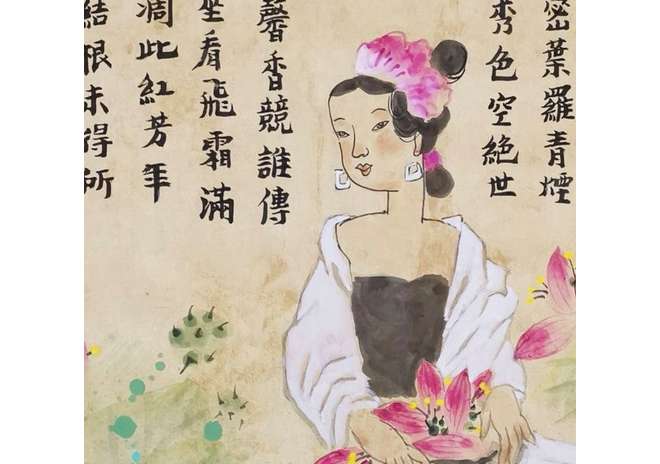 密葉羅青煙
秀色空絕世
馨香競誰傳
坐看飛霜滿
凋此紅芳年
結根未得所